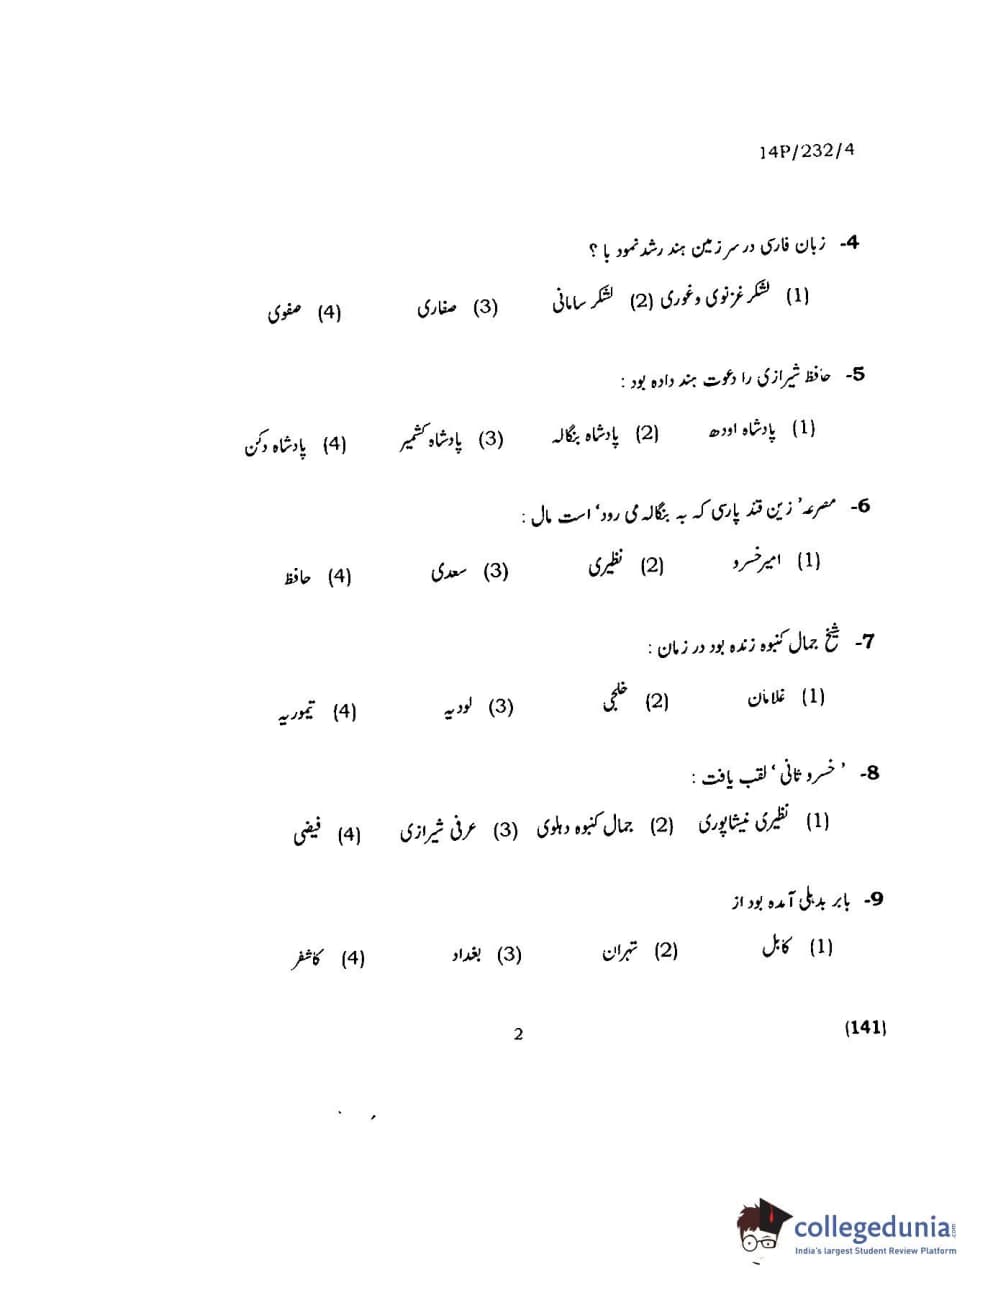 14P/232/4
4- زبان فارسی در سرزمین ہند رشد نمود با ؟
(1) لشکر غزنوی و غوری (2) لشکر سامانی (3) صفاری (4) صفوی
5- حافظ شیرازی را دعوت ہند داده بود :
(1) پادشاه اودھ (2) پادشاه بنگالہ (3) پادشاه کشمیر (4) پادشاه دکن
6- مصرعہ ’زین قند پارسی کہ بہ بنگالہ می رود‘ است مال :
(1) امیر خسرو (2) نظیری (3) سعدی (4) حافظ
7- شیخ جمال کنبوه زنده بود در زمان :
(1) غلامان (2) خلجی (3) لودیہ (4) تیموریہ
8- ’خسرو ثانی‘ لقب یافت :
(1) نظیری نیشاپوری (2) جمال کنبوه دہلوی (3) عرفی شیرازی (4) فیضی
9- بابر بدہلی آمده بود از
(1) کابل (2) تہران (3) بغداد (4) کاشغر
2
(141)
collegedunia.com
India's largest Student Review Platform